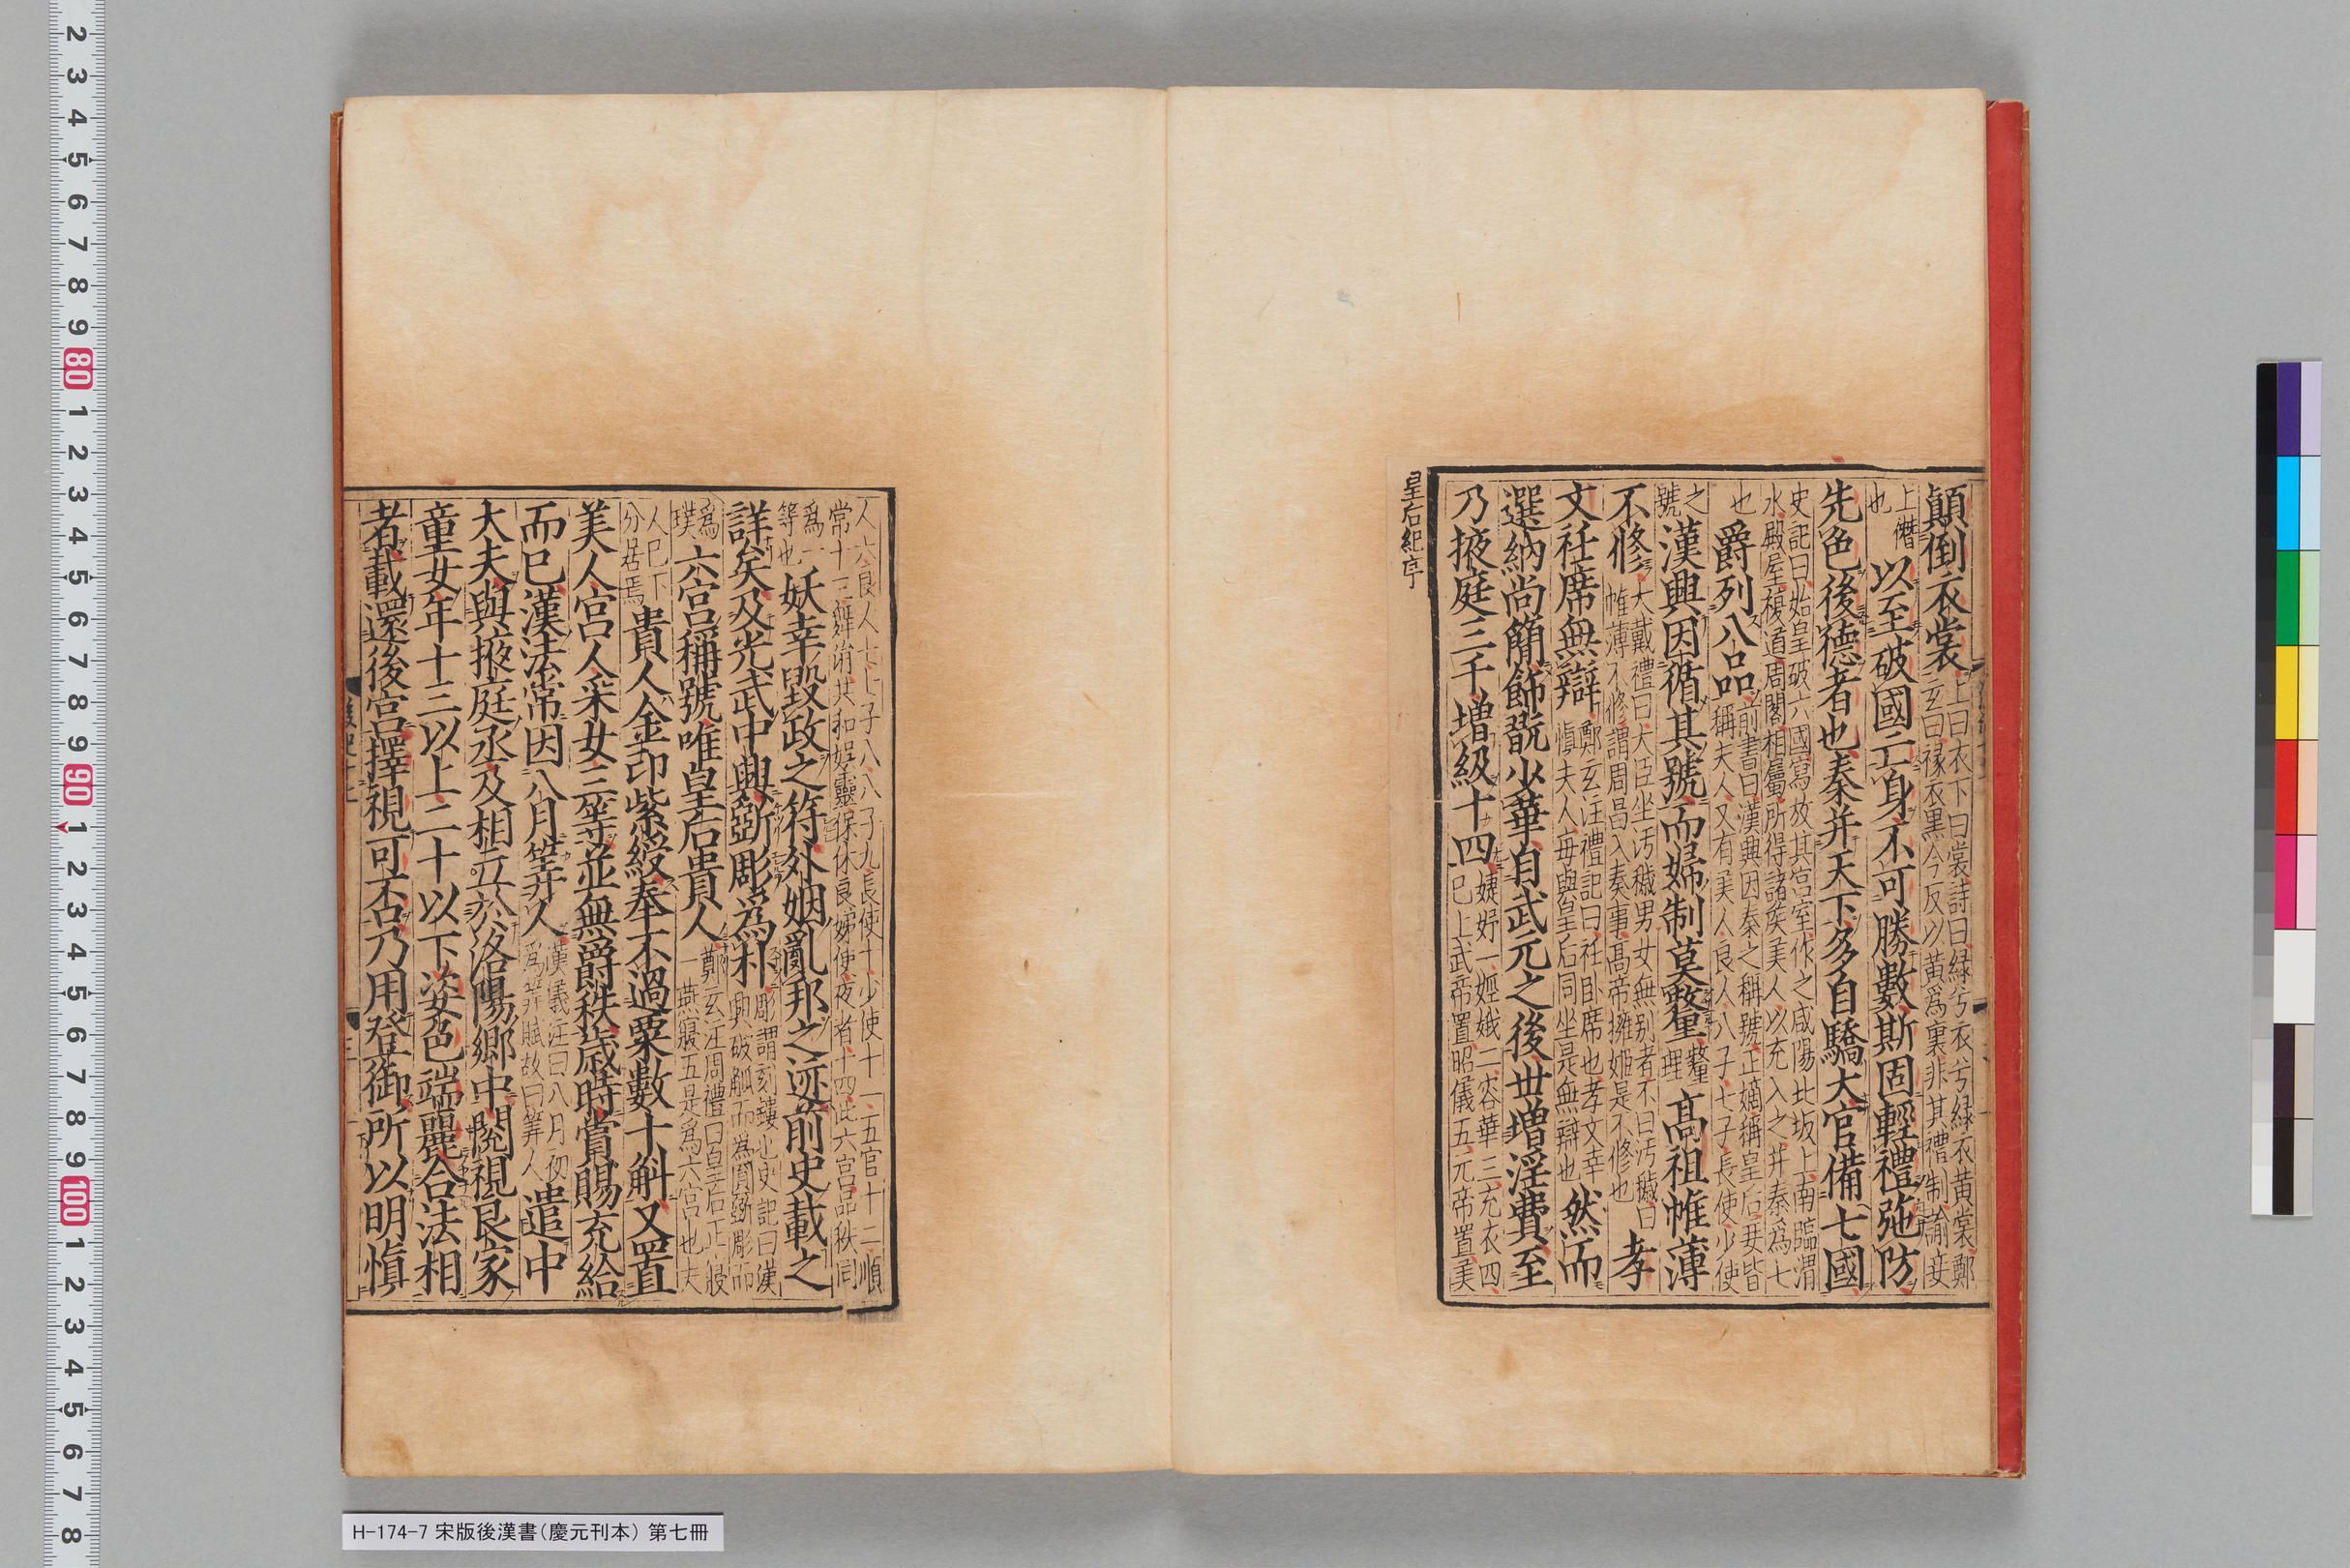 顛倒衣裳上曰衣下曰裳詩曰緑兮衣兮緑衣黄裳鄭
玄曰褖衣黒今反以黄爲裏非其禮制諭妾
上僭
也以至破國亡身不可勝數斯固輕禮弛防
先色後德者也秦并天下多自驕大官備七國
史記曰始皇破六國寫放其宮室作之咸陽北坂上南臨渭
水殿屋複道周閣相屬所得諸侯美人以充入之并秦爲七
也爵列八品前書曰漢興因秦之稱號正嫡稱皇后妾皆
稱夫人又有美人良人八子七子長使少使
之
號漢興因循其號而婦制莫釐釐
理高祖帷薄
不修大戴禮曰大臣坐汚穢男女無別者不曰汚穢曰
帷薄不修謂周昌入奏事高帝擁姬是不修也孝
文衽席無辯鄭玄注禮記曰衽卧席也孝文幸
慎夫人毎與皇后同坐是無辯也然而
選納尚簡飾翫少華自武元之後世増淫費至
乃掖庭三千増級十四婕妤一娙娥二容華三充衣四
已上武帝置昭儀五元帝置美
皇后紀序
人六良人七七子八八子九長使十少使十一五官十二順
常十三舞涓共和娯靈保林良娣使夜者十四此六宮品秩同
爲一
等也妖幸毀政之符外姻亂邦之迹前史載之
詳矣及光武中興斲彫爲朴彫謂刻鏤也史記曰漢
興破觚而爲圜斲彫而
爲
璞六宮稱號唯皇后貴人鄭玄注周禮曰皇后正寢
一燕寢五是爲六宮也夫
人已下
分居焉貴人金印紫綬奉不過粟數十斛又置
美人宮人采女三等並無爵秩歳時賞賜充給
而已漢法常因八月筭人漢儀注曰八月初
爲筭賦故曰筭人遣中
大夫與掖庭丞及相工於洛陽鄉中閲視良家
童女年十三以上二十以下姿色端麗合法相
者載還後宮擇視可否乃用登御所以明慎
H-174-7 宋版後漢書(慶元刊本) 第七冊